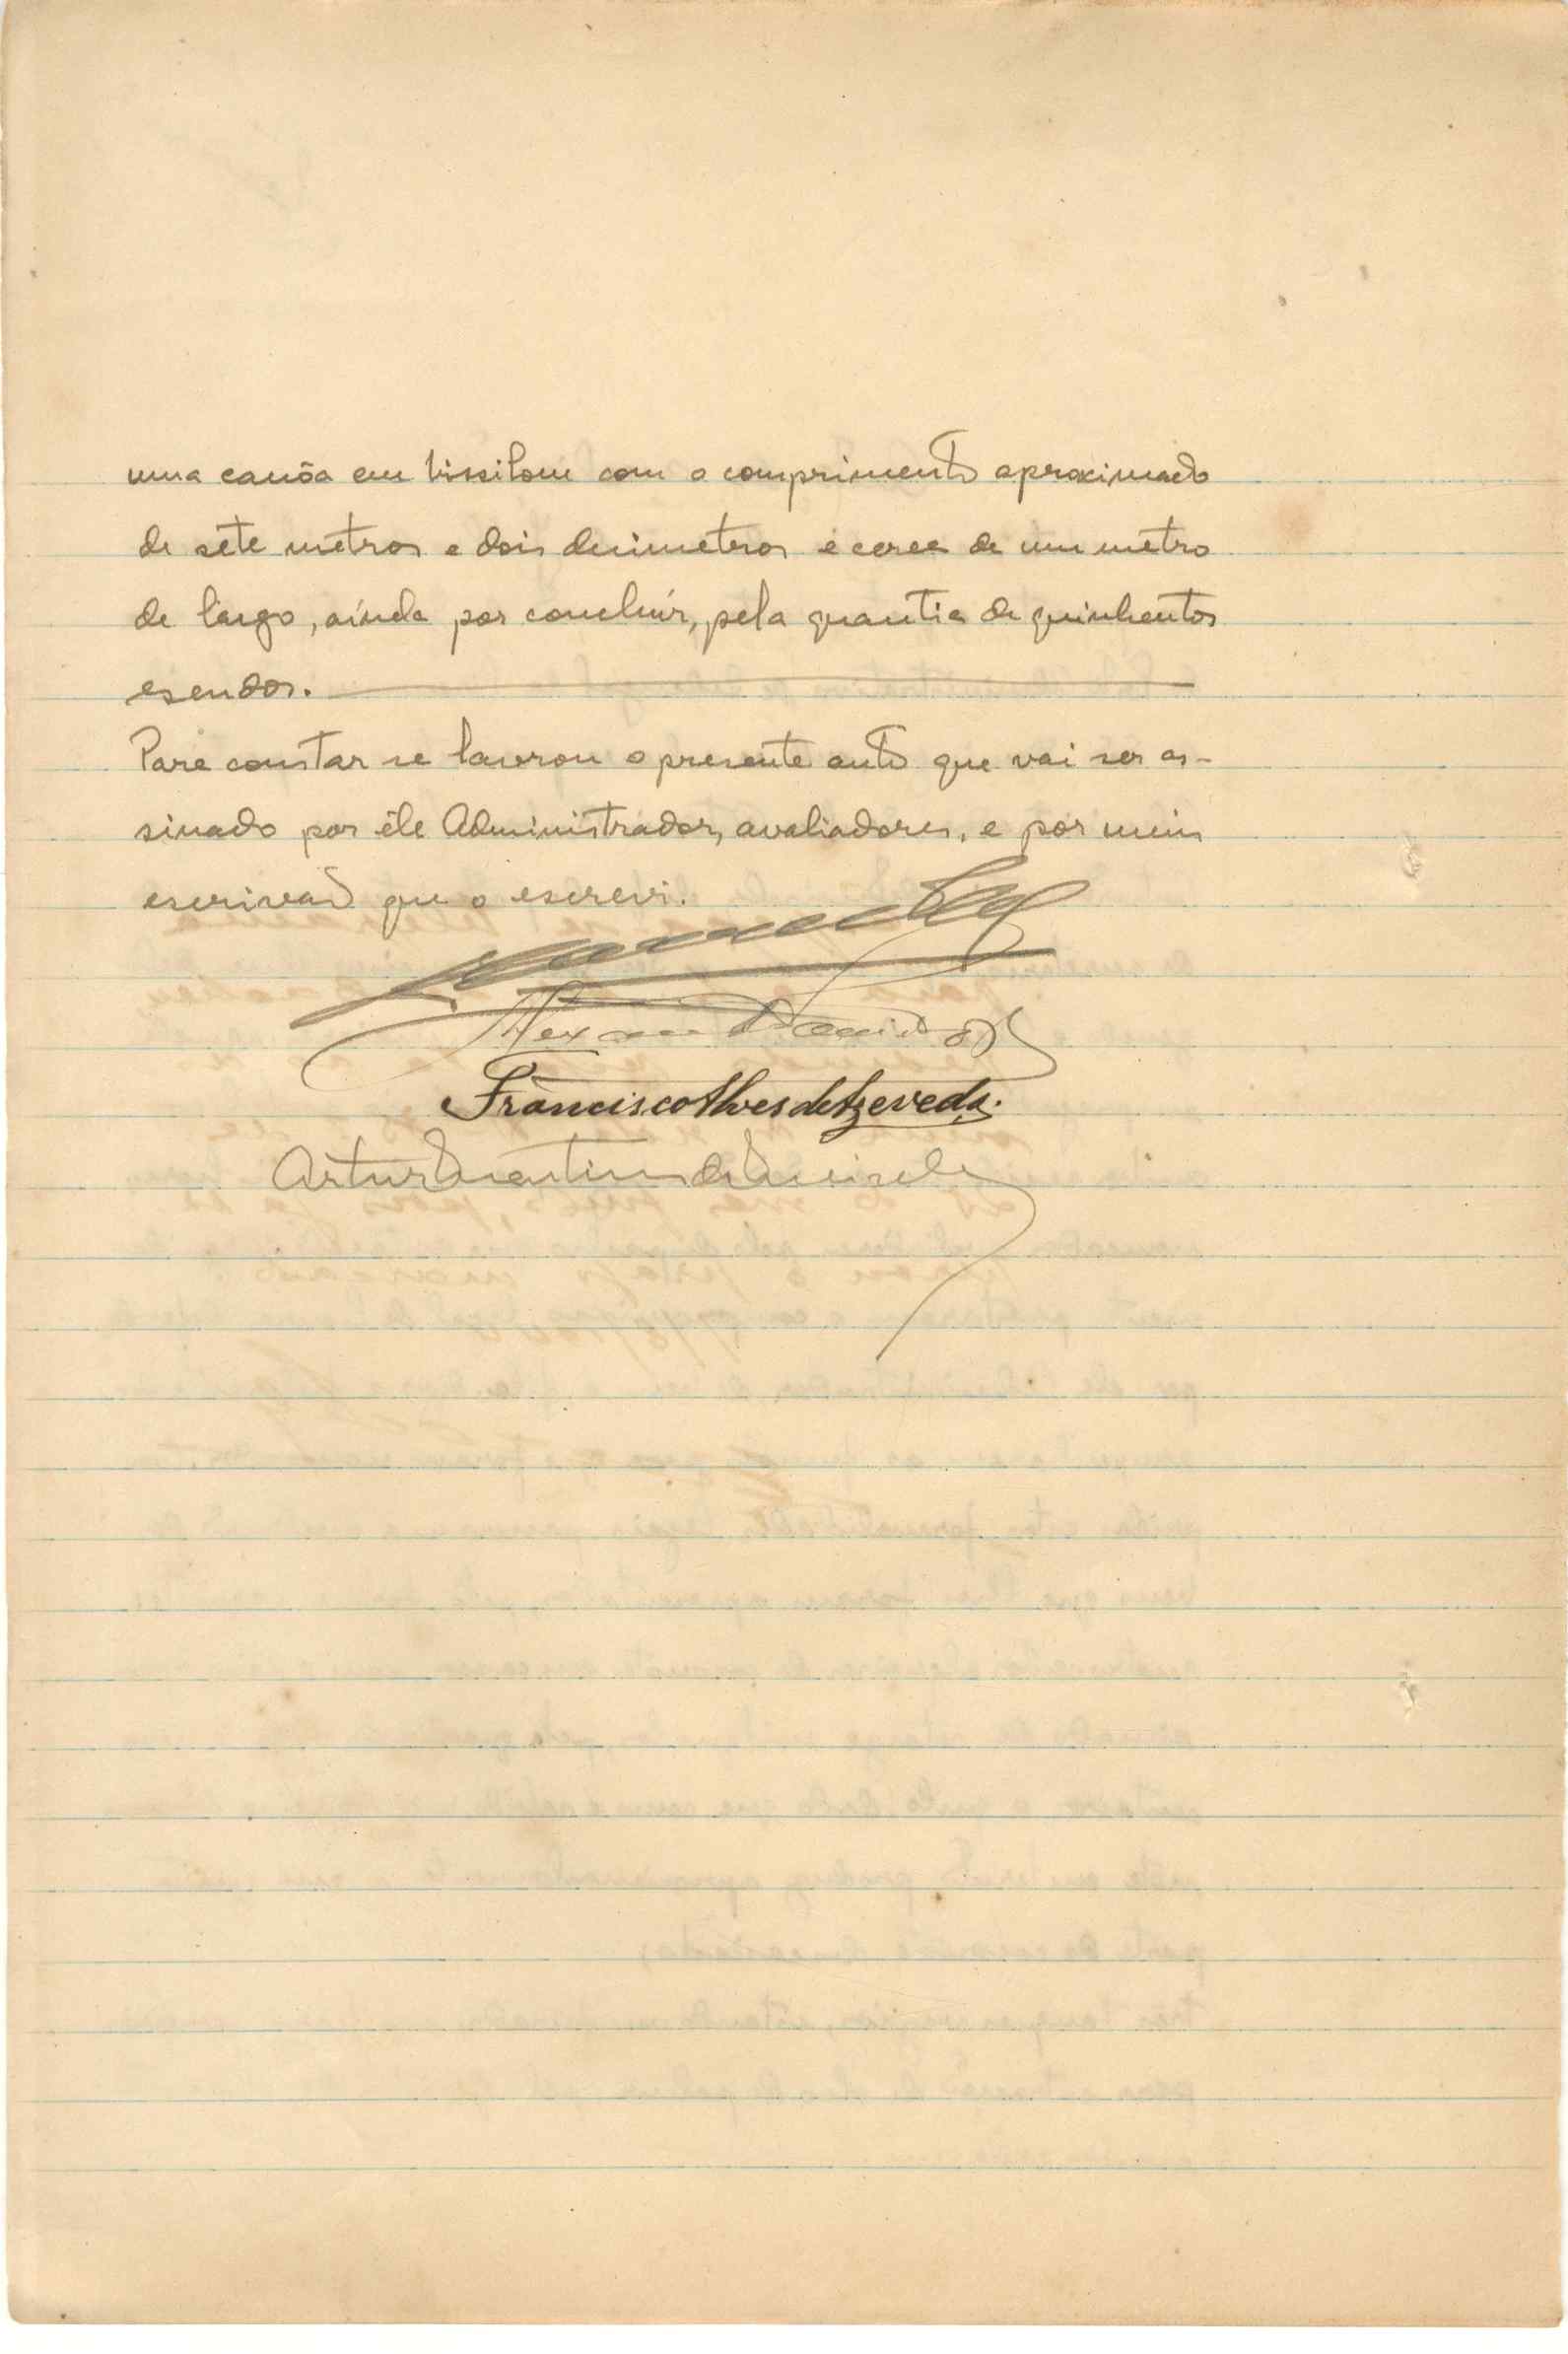 uma canôa em bissilom com o comprimento aproximado
de séte métros e dois decimetros e cerca de um métro
de largo, aínda por concluír, pela quantia de quinhentos
escudos.
Para constar se lavrou o presente auto que vai ser as-
sinado por êle Administrador, avaliadores, e por mim
escrivão que o escrevi.
Francisco Alves de Azevedo.
Artur Martins de